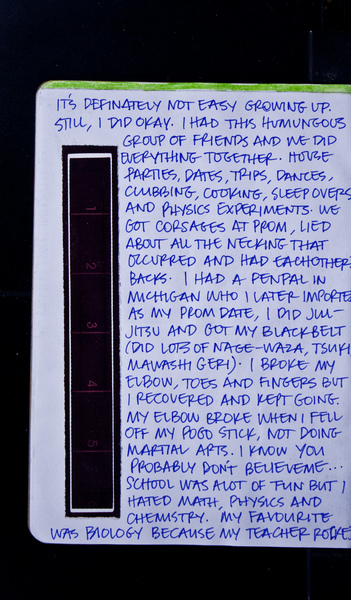 IT'S DEFINATELY NOT EASY GROWING UP.
STILL, I DID OKAY. I HAD THIS HUMUNGOUS
GROUP OF FRIENDS AND WE DID
EVERYTHING TOGETHER. HOUSE
PARTIES, DATES, TRIPS, DANCES,
CLUBBING, COOKING, SLEEP OVERS
AND PHYSICS EXPERIMENTS. WE
GOT CORSAGES AT PROM, LIED
ABOUT ALL THE NECKING THAT
OCCURRED AND HAD EACHOTHERS
BACKS. I HAD A PENPAL IN
MICHIGAN WHO I LATER IMPORTE
AS MY PROM DATE, I DID JIU-
JITSU AND GOT MY BLACKBELT
(DID LOTS OF NAGE-WAZA, TSUKI
MAWASHI GERI). I BROKE MY
ELBOW, TOES AND FINGERS BUT
I RECOVERED AND KEPT GOING.
MY ELBOW BROKE WHEN I FELL
OFF MY POGO STICK, NOT DOING
MARTIAL ARTS. I KNOW YOU
PROBABLY DON'T BELIEVEME...
SCHOOL WAS ALOT OF FUN BUT I
HATED MATH, PHYSICS AND
CHEMISTRY. MY FAVOURITE
WAS BIOLOGY BECAUSE MY TEACHER ROCKE
1
2
3
4
5